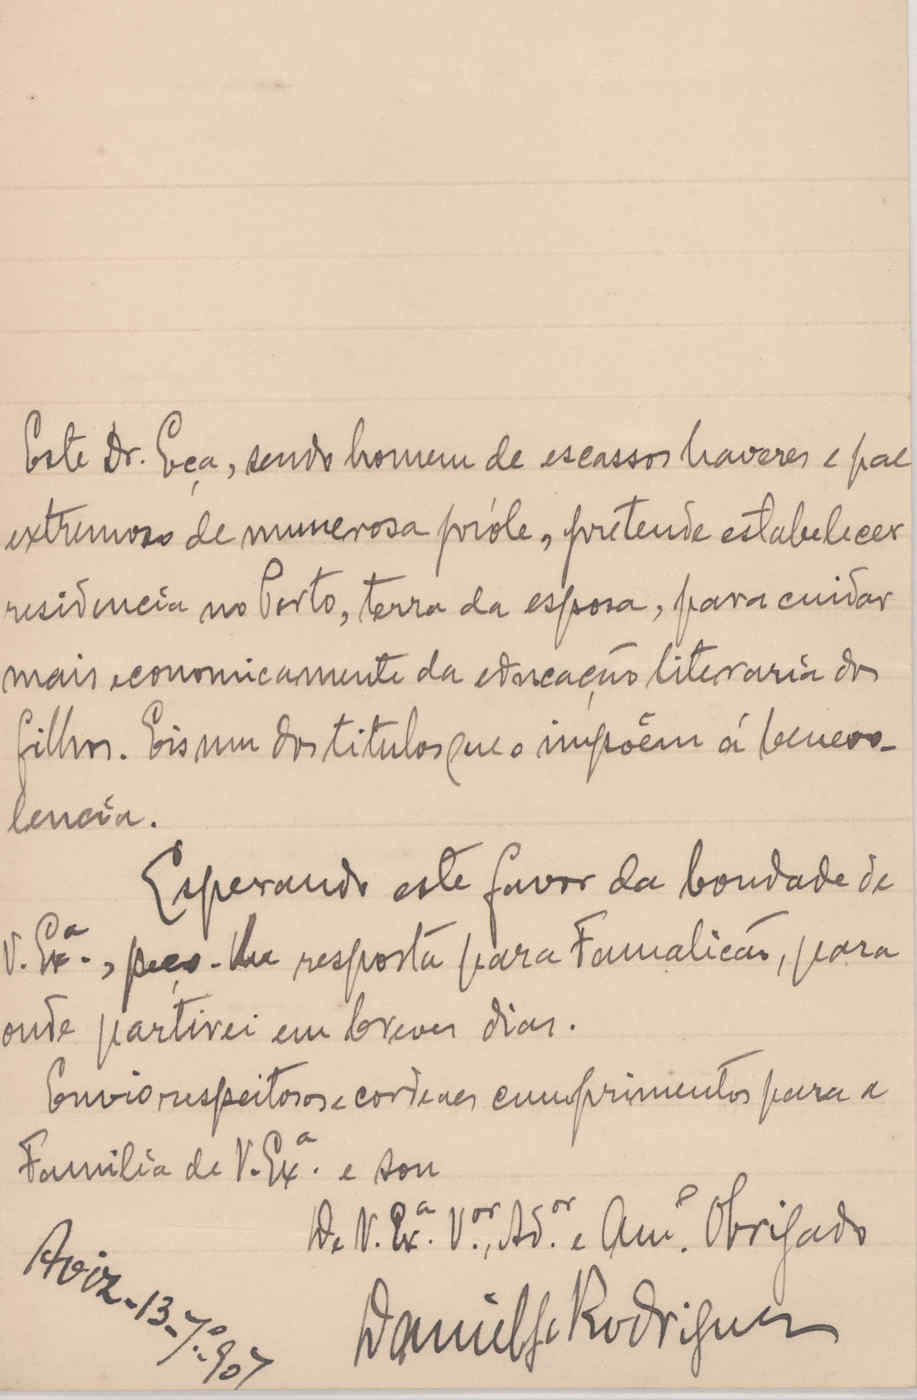 Este Dr. Eça, sendo homem de escassos haveres e pae
extremoso de numerosa próle, pretende estabelecer
residencia no Porto, terra da esposa, para cuidar
mais economicamente da educação literaria dos
filhos. Eis um dos titulos que o impõem á benevo-
lencia.
Esperando este favor da bondade de
V. Exª., peço-lhe resposta para Famalicão, para
onde partirei em breves dias.
Envio respeitosos e cordeaes cumprimentos para a
Familia de V. Exª. e sou
De V. Exª. V.or, Ad.or e Am.º Obrigado
Daniel Je Rodrigues
Aviz-13-7º-907